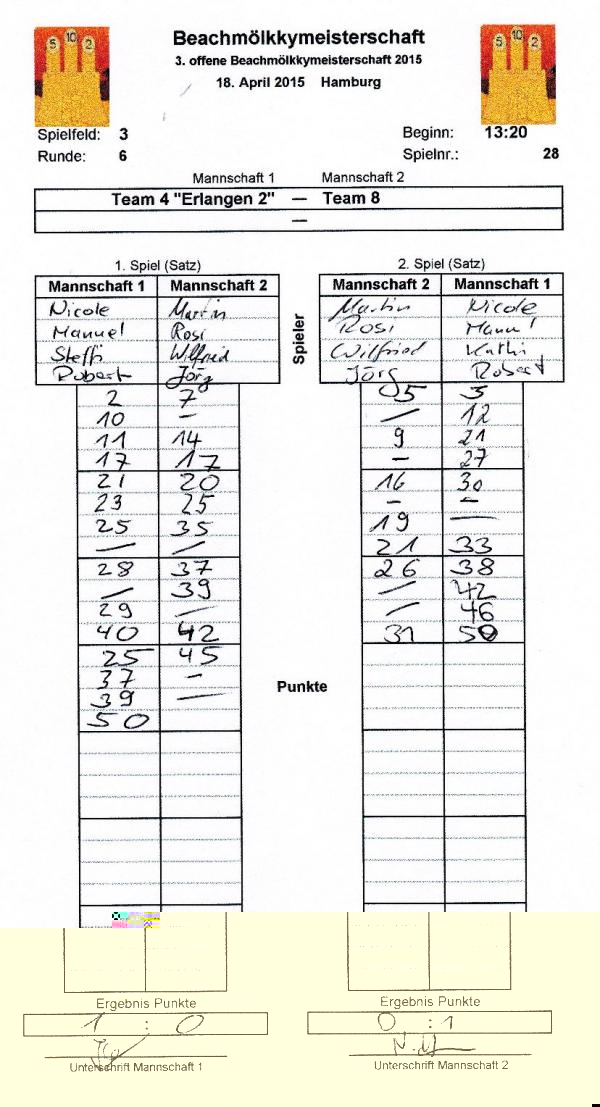 5 10 2
Beachmölkkymeisterschaft
5 10 2
3. offene Beachmölkkymeisterschaft 2015
18. April 2015 Hamburg
Spielfeld: 3 Beginn: 13:20
Runde: 6 Spielnr.: 28
Mannschaft 1 Mannschaft 2
Team 4 "Erlangen 2" — Team 8
—
1. Spiel (Satz) 2. Spiel (Satz)
Mannschaft 1 Mannschaft 2 Mannschaft 2 Mannschaft 1
Nicole Martin Martin Nicole
Manuel Rosi Rosi Manu
Steffi Wilfried Wilfried Kathi
Robert Jörg Jörg Robert
Spieler
2 7 05 3
10 – / 12
11 14 9 21
17 17 – 27
21 20 16 30
23 25 – –
25 35 19 —
— / 21 33
28 37 26 38
/ 39 / 42
29 — / 46
40 42 31 50
25 45
37 –
39 —
50
Punkte
Ergebnis Punkte Ergebnis Punkte
1 : 0 0 : 1
Unterschrift Mannschaft 1 Unterschrift Mannschaft 2